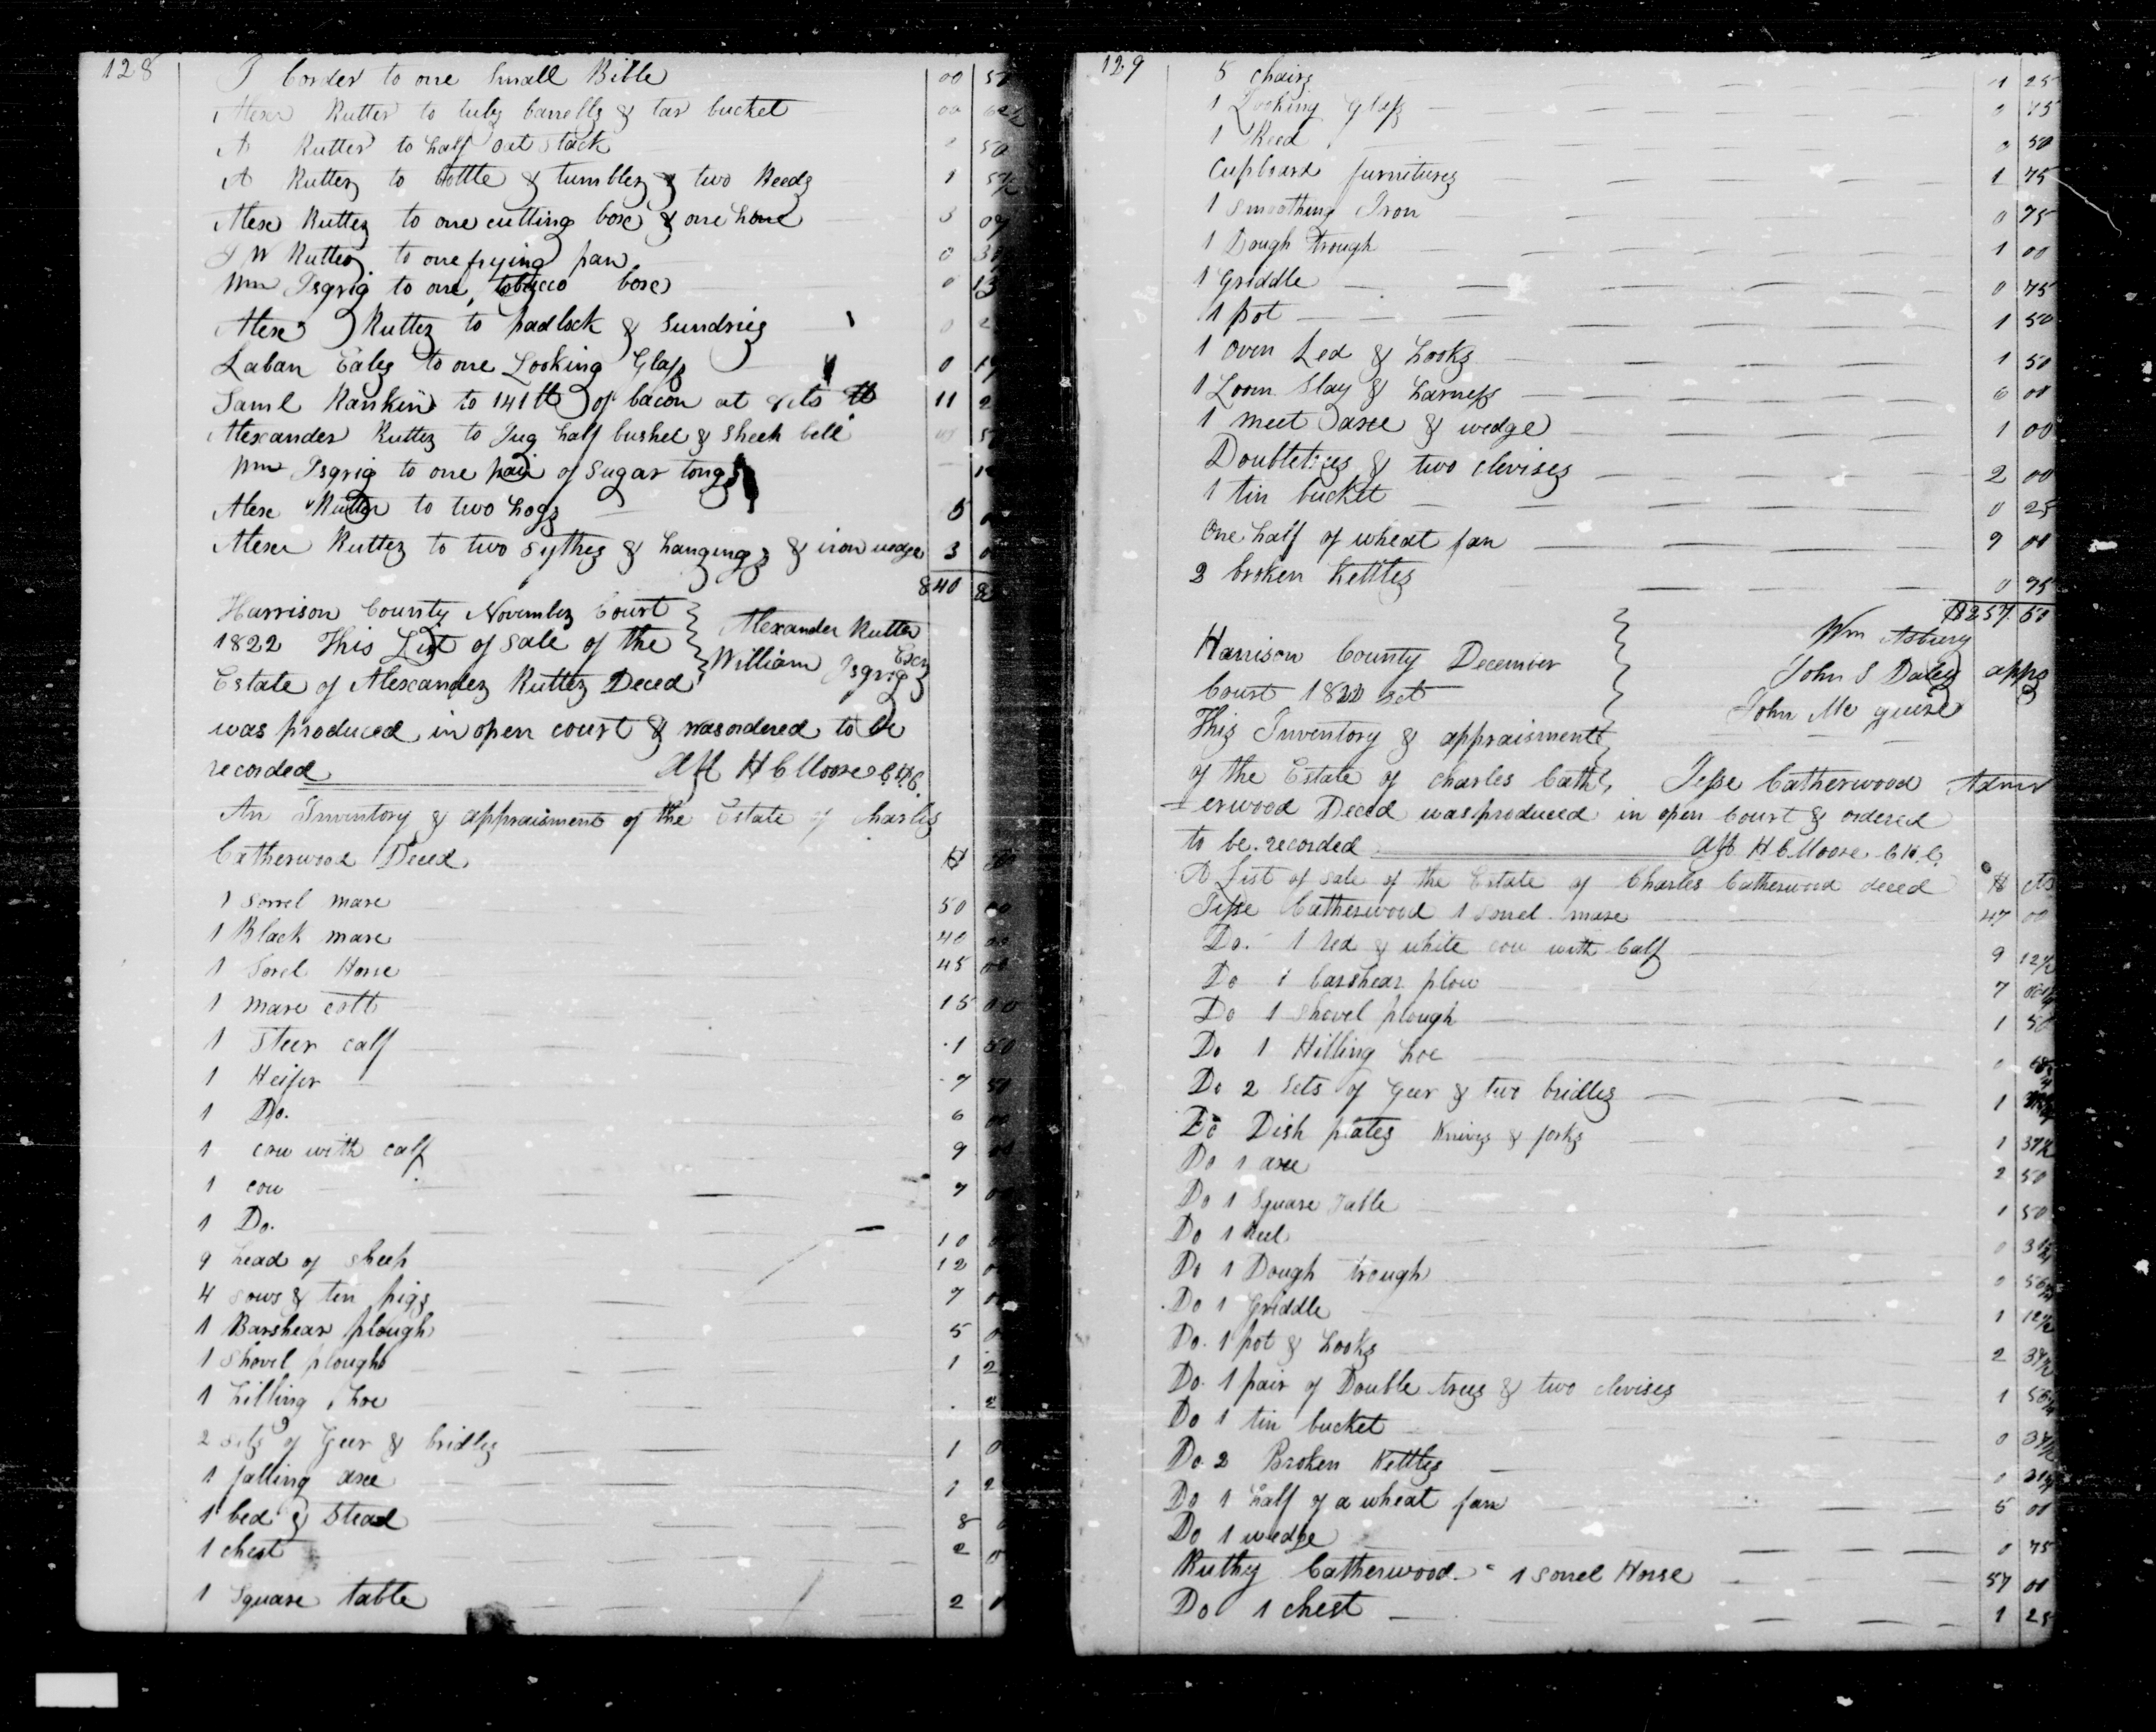 128
J Corder to one Small Bible 00 5
Alexr Rutter to tubs barrells & tar bucket 00 62½
A Rutter to half oat stack 0 50
A Rutter to bottle & tumbler & two Reeds 1 57½
Alexr Rutter to one cutting box & one hone 3 07
J W Rutter to one frying pan 0 39
Wm Isgrig to one tobacco box 0 13
Alexr Rutter to padlock & Sundries 0 2
Laban Eales to one Looking Glass 0 19
Saml Rankin to 141 lb of bacon at 8 cts lb 11 2
Alexander Rutter to Jug half bushel & Sheep bell 5
Wm Isgrig to one pair of Sugar tongs
Alexr Rutter to two hogs 5 0
Alexr Rutter to two Sythes & hangings & iron wedge 3 0
840 8
Harrison County November Court
1822 This List of Sale of the
Estate of Alexander Rutter Deced
Alexander Rutter
William Isgrig Exrs
was produced in open court & was ordered to be
recorded Att H C Moore C.H.C.
An Inventory & appraisment of the Estate of Charles
Catherwood Deced $
1 Sorrel mare 50 00
1 Black mare 40 00
1 Sorel Horse 45 00
1 mare colt 15 00
1 Steer calf 1 50
1 Heifer 7 50
1 Do. 6 00
1 cow with calf 9 00
1 cow 7 0
1 Do. 10 0
9 head of Sheep 12 0
4 Sows & ten pigs 7 0
1 Barshear plough 5 0
1 Shovel plough 1 2
1 hilling hoe 2
2 Sets of Geer & bridles 1 0
1 falling axe 1 2
1 bed & Stead 8 0
1 chest 2 0
1 Square table 2 0
129
5 chairs 1 25
1 Looking Glass 0 75
1 Reed 0 50
Cupboard furnitures 1 75
1 Smoothing Iron 0 75
1 Dough trough 1 00
1 Griddle 0 75
1 pot 1 50
1 Oven Led & hooks 1 50
1 Loom Slay & harness 6 00
1 meet axe & wedge 1 00
Doubletrees & two clevises 2 00
1 tin bucket 0 25
One half of wheat fan 9 00
2 broken Kettles 0 75
$257.50
Harrison County December
Court 1822 Sct
Wm Asbury
John S Daley apprs
John Mc guire
This Inventory & appraisment
of the Estate of Charles Cath Jesse Catherwood Admr
-erwood Deced was produced in open Court & ordered
to be recorded Att H C Moore C.H.C.
A List of Sale of the Estate of Charles Catherwood deced $ cts
Jesse Catherwood 1 Sorrel mare 47 00
Do. 1 red & white cow with Calf 9 12½
Do 1 barshear plow 7
Do 1 Shovel plough 1 50
Do 1 Hilling hoe 0
Do 2 Sets of Geer & two bridles 1
Do Dish plates Knives & forks 1 37½
Do 1 axe 2 50
Do 1 Square Table 1 50
Do 1 Reel 0 31¼
Do 1 Dough trough 0 56¼
Do 1 Griddle 1 12½
Do. 1 pot & hooks 2 37½
Do. 1 pair of Double trees & two clevises 1 56¼
Do 1 tin bucket 0 37½
Do 2 Broken Kettles 0 31¼
Do 1 half of a wheat fan 5 00
Do 1 wedge 0 75
Ruthy Catherwood 1 Sorrel Horse 57 00
Do 1 chest 1 25